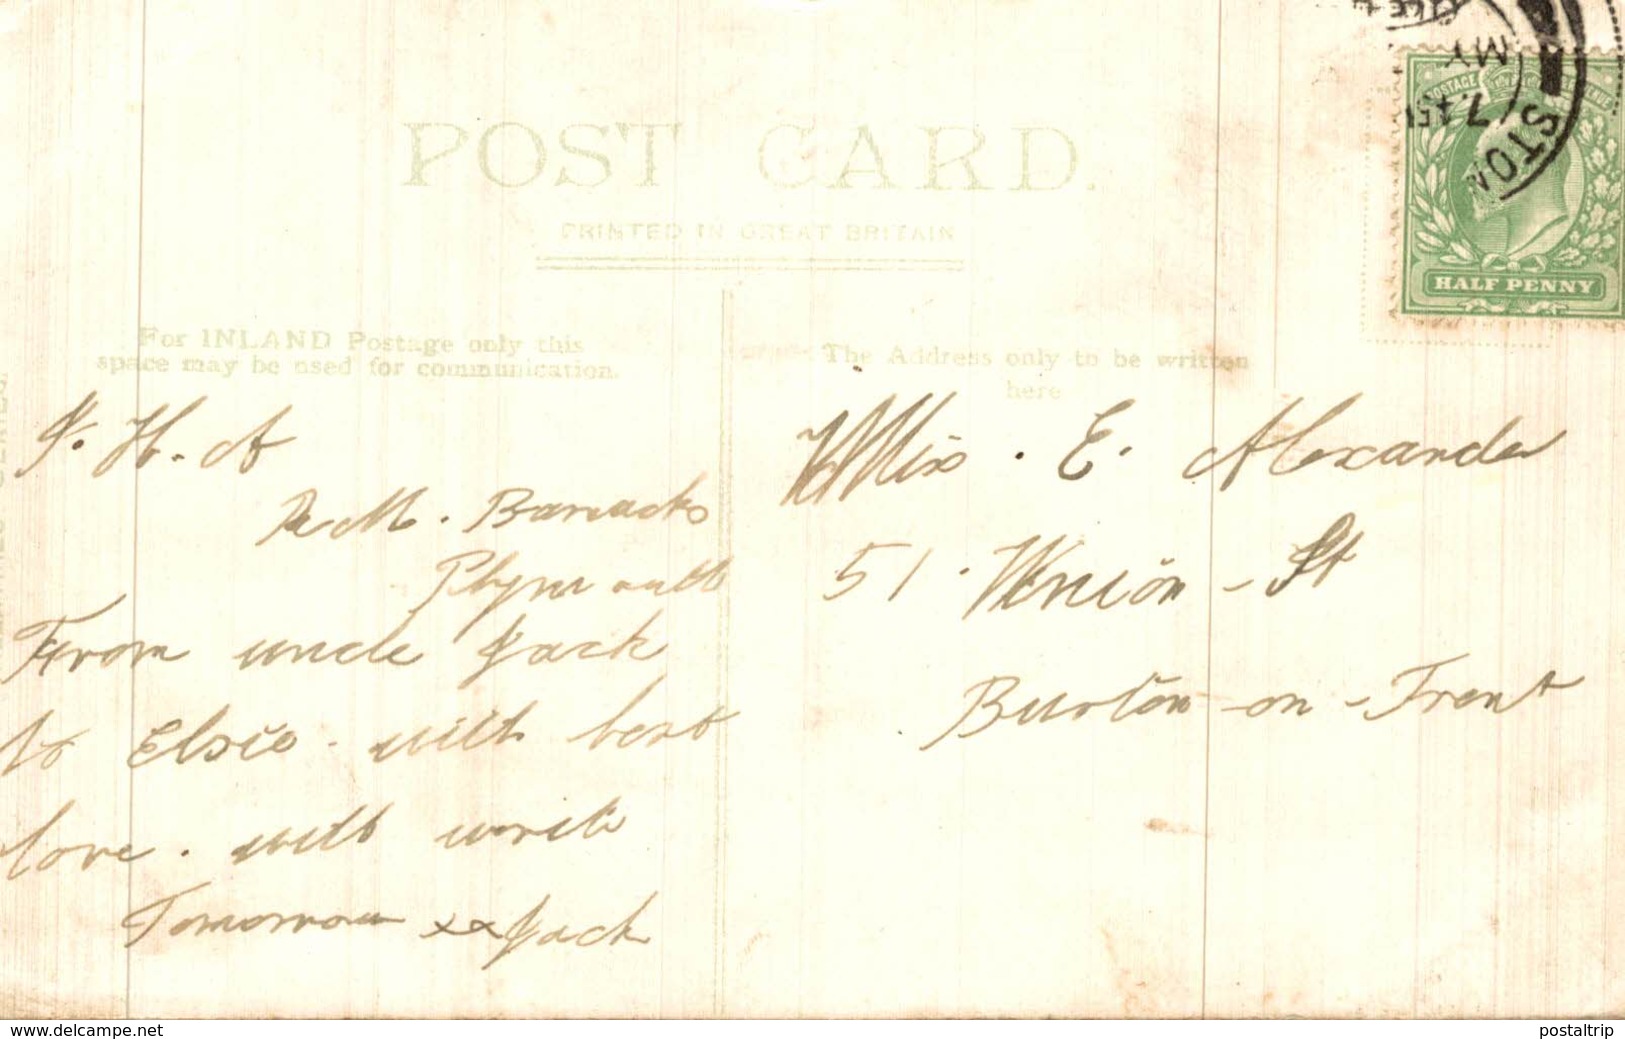 POST CARD.
PRINTED IN GREAT BRITAIN
For INLAND Postage only this
space may be used for communication.
The Address only to be written
here
J. H. A
R M. Barracks
Plymouth
From uncle Jack
to Elsie. with best
love. will write
Tomorrow xx Jack
Miss. E. Alexander
51. Union - St
Burton - on - Trent
POSTAGE
HALF PENNY
STON
MY
7.45
www.delcampe.net
postaltrip